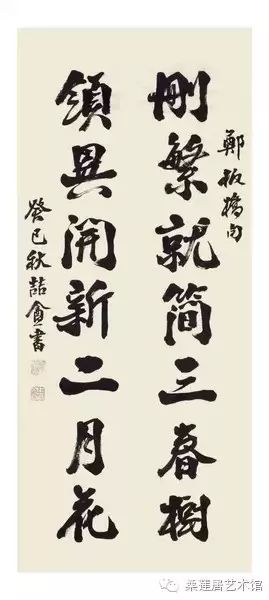 鄭板橋句
刪繁就簡三春樹
領異開新二月花
癸巳秋喆書
桑莲居艺术馆